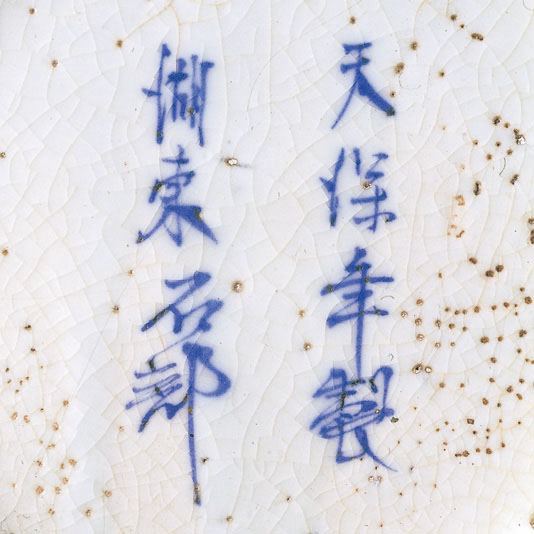 天保年製
湖東石部